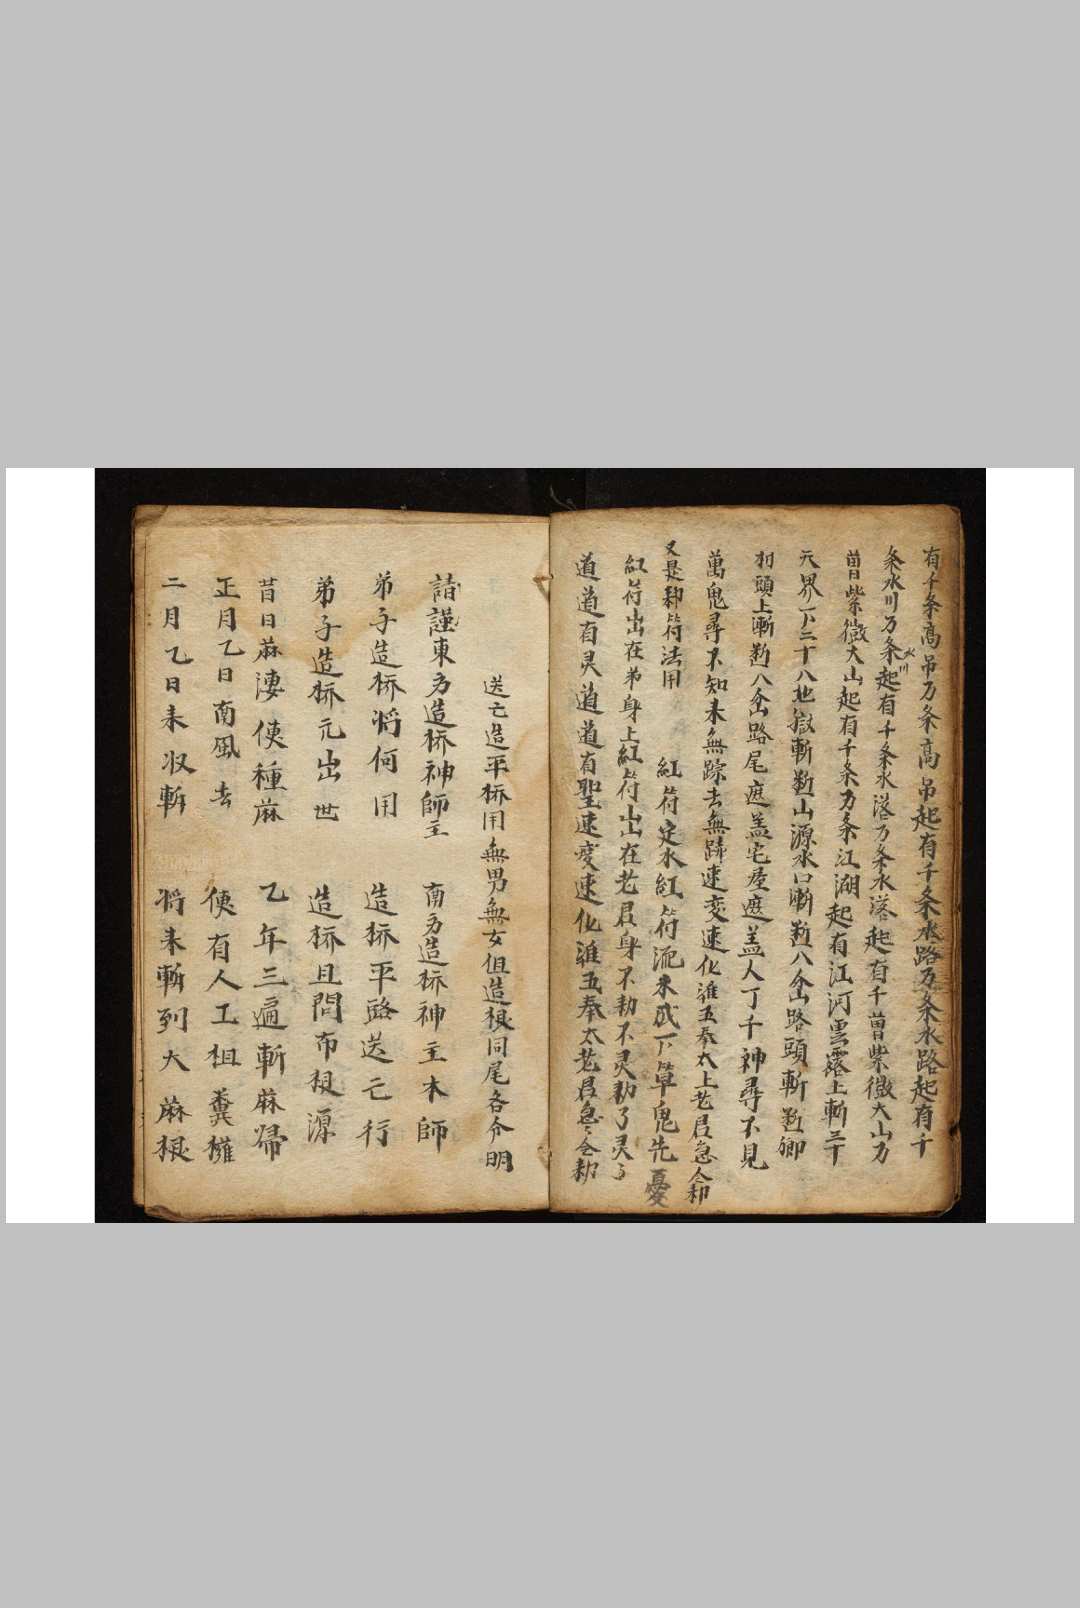 有千条高吊万条高吊起有千条水路万条水路起有千
条水川万条水川起有千条水落万条水落起有千曽紫微大山万
曽紫微大山起有千条万条江湖起有江河雲露上斬三十
天界下二十八地獄斬断山源水口斬断八尒路頭斬断卿
羽頭上斬断八尒路尾遮盖宅屋遮盖人丁千神尋不見
萬鬼尋不知来無踪去無跡速变速化准五奉太上老君急令勅
又是勅符法用 紅符定水紅符流来成下笡鬼先憂
紅符出在弟身上紅符出在老君身不勅不灵勅了灵了
道道有灵道道有聖速变速化准五奉太老君急令勅
送亡造平桥用無男無女但造根同尾各分明
請謹東方造桥神師主 南方造桥神主本師
弟子造桥将何用 造桥平路送亡行
弟子造桥元出世 造桥且問布根源
昔日蔴凄使種蔴 乙年三遍斬蔴歸
正月乙日南風去 使有人工担糞擁
二月乙日未收斬 将来斬列大蔴根